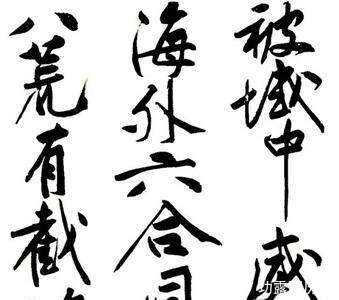 被域中威
海外六合同
八荒有截